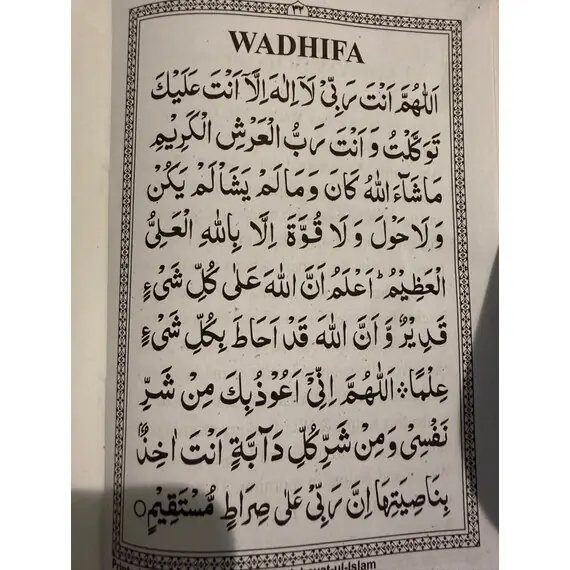 ٢٣
WADHIFA
اَللّٰهُمَّ اَنْتَ رَبِّیْ لَآ اِلٰهَ اِلَّآ اَنْتَ عَلَیْكَ
تَوَكَّلْتُ وَ اَنْتَ رَبُّ الْعَرْشِ الْكَرِیْمِ
مَا شَآءَ اللّٰهُ كَانَ وَمَا لَمْ یَشَاْ لَمْ یَكُنْ
وَلَا حَوْلَ وَ لَا قُوَّةَ اِلَّا بِاللّٰهِ الْعَلِیُّ
الْعَظِیْمُ ؕ اَعْلَمُ اَنَّ اللّٰهَ عَلٰی كُلِّ شَیْءٍ
قَدِیْرٌ وَّ اَنَّ اللّٰهَ قَدْ اَحَاطَ بِكُلِّ شَیْءٍ
عِلْمًا ۞ اَللّٰهُمَّ اِنِّیْ اَعُوْذُ بِكَ مِنْ شَرِّ
نَفْسِیْ وَ مِنْ شَرِّ كُلِّ دَآبَّةٍ اَنْتَ اٰخِذٌۢ
بِنَاصِیَتِهَا اِنَّ رَبِّیْ عَلٰی صِرَاطٍ مُّسْتَقِیْمٍ ○
ayat-ul-Islam